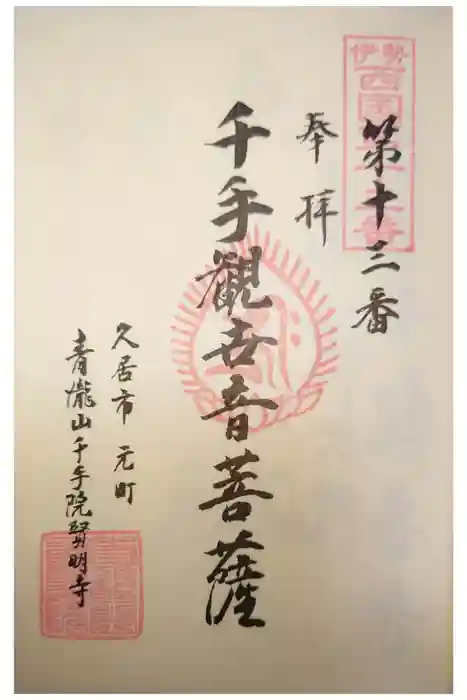 伊勢西国三十三番
第十三番
奉拝
千手観世音菩薩
久居市元町
青瀧山千手院賢明寺